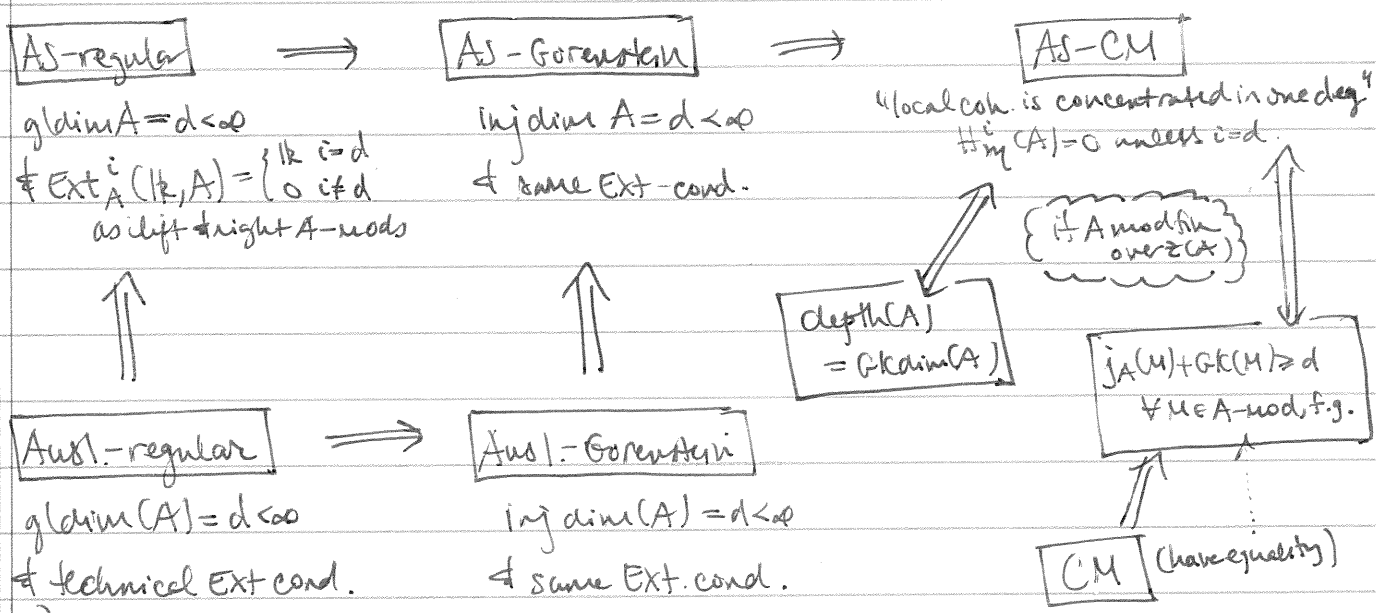 AS-regular ⟹ AS-Gorenstein ⟹ AS-CM
gldim A = d < ∞
& Ext^i_A(𝕜, A) = { 𝕜 i=d
0 i≠d
as left & right A-mods
injdim A = d < ∞
& same Ext-cond.
"local coh. is concentrated in one deg"
H^i_m(A) = 0 unless i=d.
if A mod fin
over Z(A)
depth(A)
= GKdim(A)
j_A(M) + GK(M) ≥ d
∀ M ∈ A-mod, f.g.
Ausl.-regular ⟹ Ausl.-Gorenstein
gldim(A) = d < ∞
& technical Ext cond.
injdim(A) = d < ∞
& same Ext. cond.
CM (have equality)